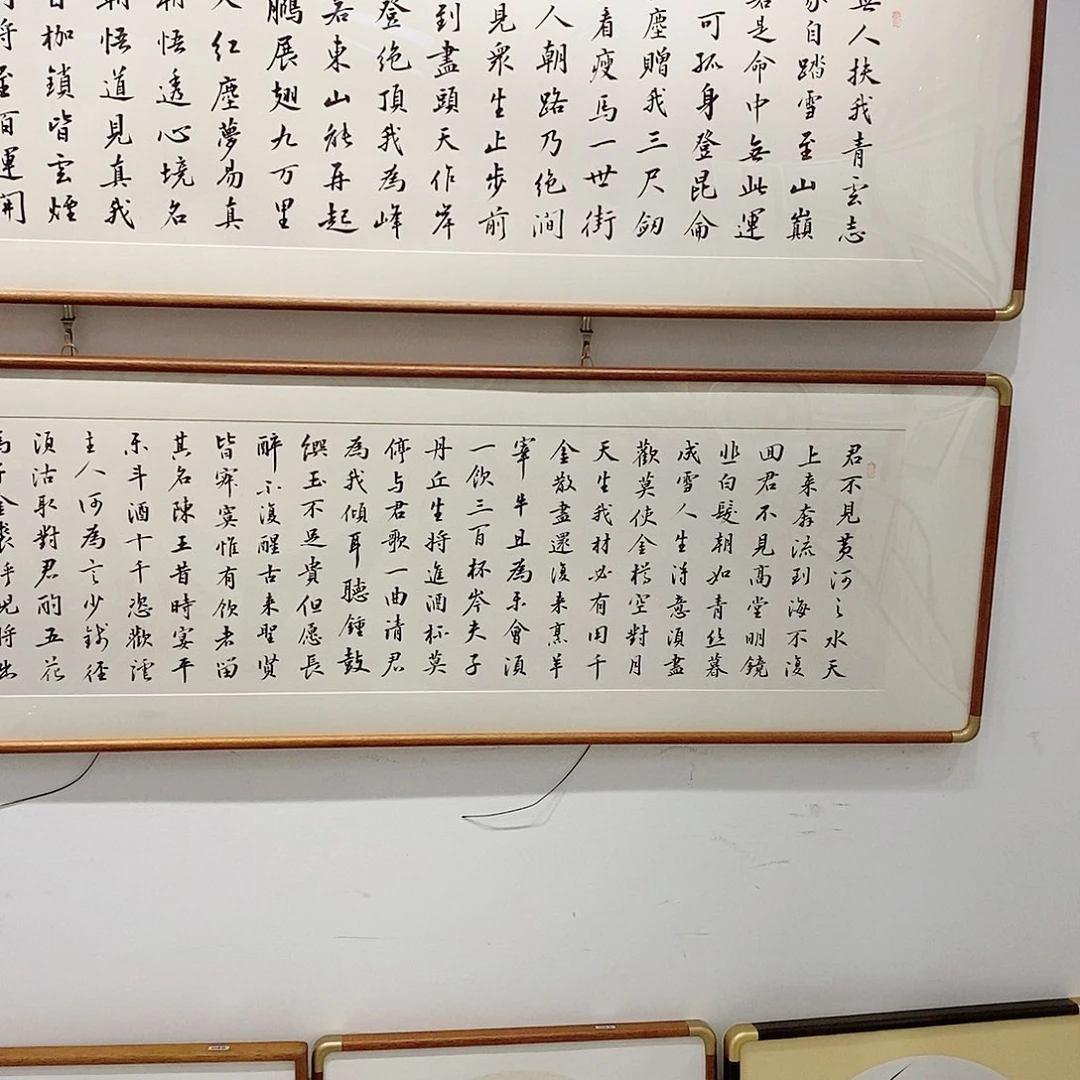 無人扶我青雲志
自踏雪至山巔
是命中無此運
可孤身登昆侖
塵贈我三尺劍
看瘦馬一世街
人朝路乃绝澗
見衆生止步前
到盡頭天作岸
登绝頂我為峰
若東山能再起
鵬展翅九万里
红塵夢易真
悟透心境名
朝悟道見真我
枷鎖皆雲煙
至百運開
君不見黄河之水天
上来奔流到海不復
回君不見高堂明鏡
悲白髮朝如青丝暮
成雪人生得意須盡
歡莫使金樽空對月
天生我材必有用千
金散盡還復来烹羊
宰牛且為樂會須
一飲三百杯岑夫子
丹丘生將進酒杯莫
停与君歌一曲清君
為我傾耳聽鍾鼓
饌玉不足貴但愿長
醉不復醒古来聖贤
皆寂寞惟有飲者留
其名陳王昔時宴平
樂斗酒十千恣歡謔
主人何為言少錢徑
須沽取對君酌五花
馬千金裘呼兒將出